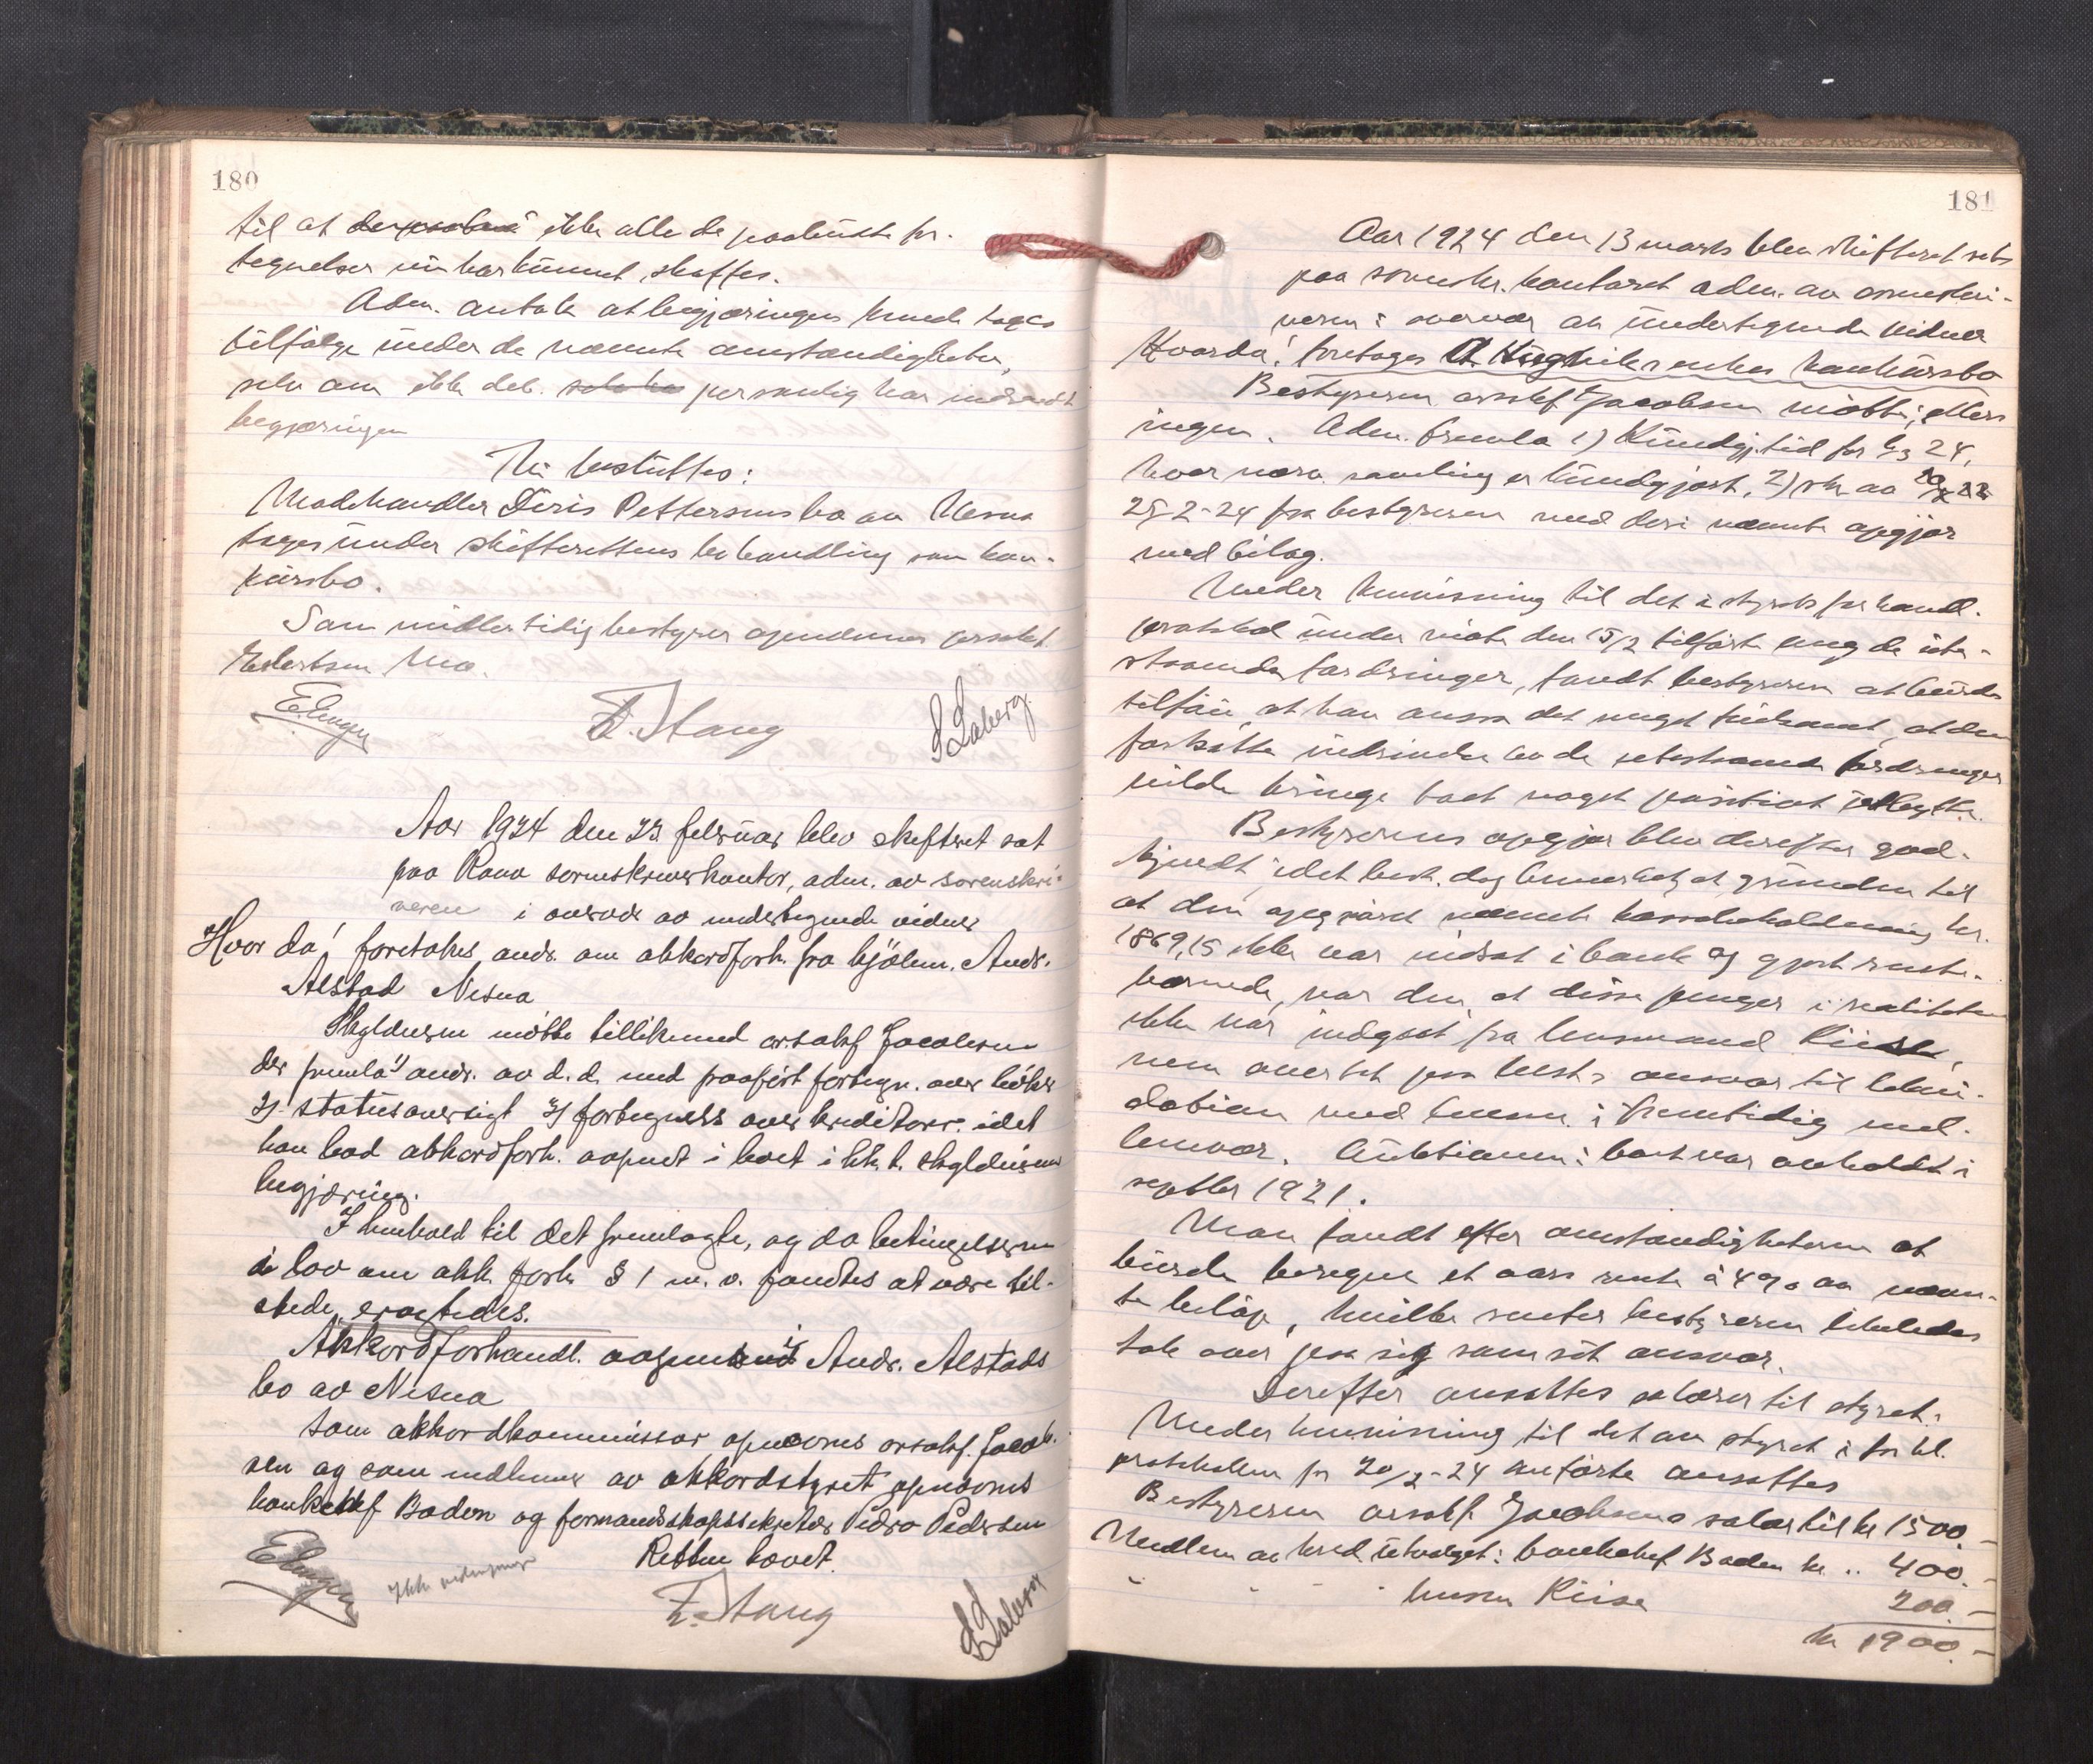 180
til at ikke alle de paabudte for-
tegnelser nu har kunnet skaffes.
Adm. antok at begjæringen kunde tages
tilfølge under de nævnte omstændigheter,
selv om ikke deb. personlig har indsendt
begjæringen
Ti besluttes:
Modehandler Diris Pettersens bo av Nesna
tages under skifterettens behandling som kon-
kursbo.
Som midlertidig bestyrer opnævnes prokst.
Mo.
E. Stang
S Solberg
Aar 1924 den 23 februar blev skifteret sat
paa Rana sorenskriverkontor, adm. av sorenskri-
veren i overvær av undertegnede vidner
Hvor da! foretokes andr. om akkordforh. fra kjøbm. Andr.
Alstad Nesna
Skyldneren møtte tillikemed o.r.sakf. Jacobsen
der fremla 1) andr. av d.d. med paaført fortegn. over bøker
2) statusoversigt 3) fortegnelse over kreditorer. idet
han bad akkordforh. aapnet i boet i h.h.t. skyldneren
begjæring.
I henhold til det fremlagte, og da betingelserne
i lov om akk. forh. § 1 m. v. fandtes at være til-
stede, eragtedes.
Akkordforhandl. aapnes i Andr. Alstads
bo av Nesna
Som akkordkommissær opnævnes o.r.sakf. Jacob-
sen og som medlemmer av akkordstyret opnævnes
bankchef Baden og formandskapssekretær Pedro Pedersen
Retten hævet.
E. Stang
S Solberg
181
Aar 1924 den 13 marts blev skifteret sat
paa sorenskr. kontoret adm. av sorenskri-
veren i overvær av undertegnede vidner
Hvorda! foretages konkursbo
Bestyreren o.r.sakf Jacobsen møtte;
ingen. Adm. fremla 1) Kundgj. tid for 24,
hvor nærv. samling er kundgjort, 2) skr. av
25-2-24 fra bestyreren med deri nævnte opgjør
med bilag.
Under henvisning til det i styrets forhandl.
protokol under møte den 15/2 tilførte ang. de ute-
staaende fordringer, fandt bestyreren at burde
tilføie at han anser det meget tvilsomt, at den
fortsatte inddrivelse av de utestaaende fordringer
vilde bringe boet noget positivt utbytte.
Bestyrerens opgjør blev derefter god-
kjendt idet best. dog bemerket, at grunden til
at den i opgjøret nævnte kassabeholdning kr.
1869,15 ikke var indsat i bank og gjort rente-
bærende, var den at disse penger i realiteten
ikke var indgaat fra lensmand Kiise,
men overtat paa best.s ansvar til likvi-
dation med lensm. i fremtidig mel-
lemvær. Auktionen i boet var avholdt i
septbr 1921.
Man fandt efter omstændigheterne at
burde beregne et aars rente à 4% av nævn-
te beløp, hvilke renter bestyreren likeledes
tok over paa sig som sit ansvar.
Derefter ansattes salærer til styret.
Under henvisning til det av styret i forhl.
protokollen for 20/2-24 anførte ansattes
Bestyreren o.r.sakf. Jacobsens salær til kr 1500.-
Medlem av kred. utvalget: bankchef Baden kr .. 400.-
" - - - lensm Kiise 200.-
kr 1900.-